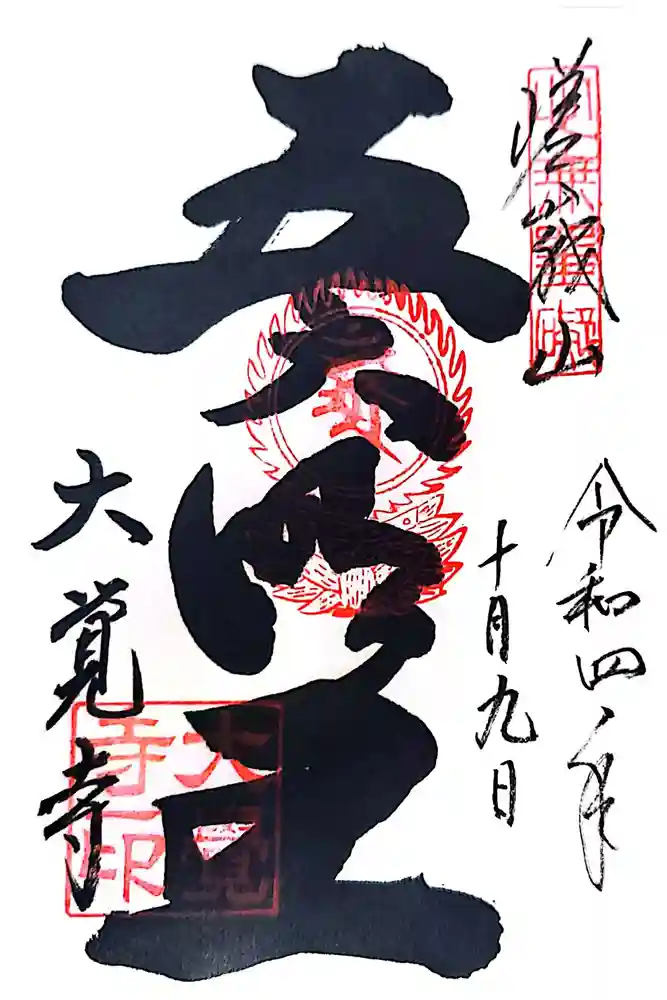 嵯峨山
令和四年
十月九日
五大明王
大覚寺
大覺
寺印